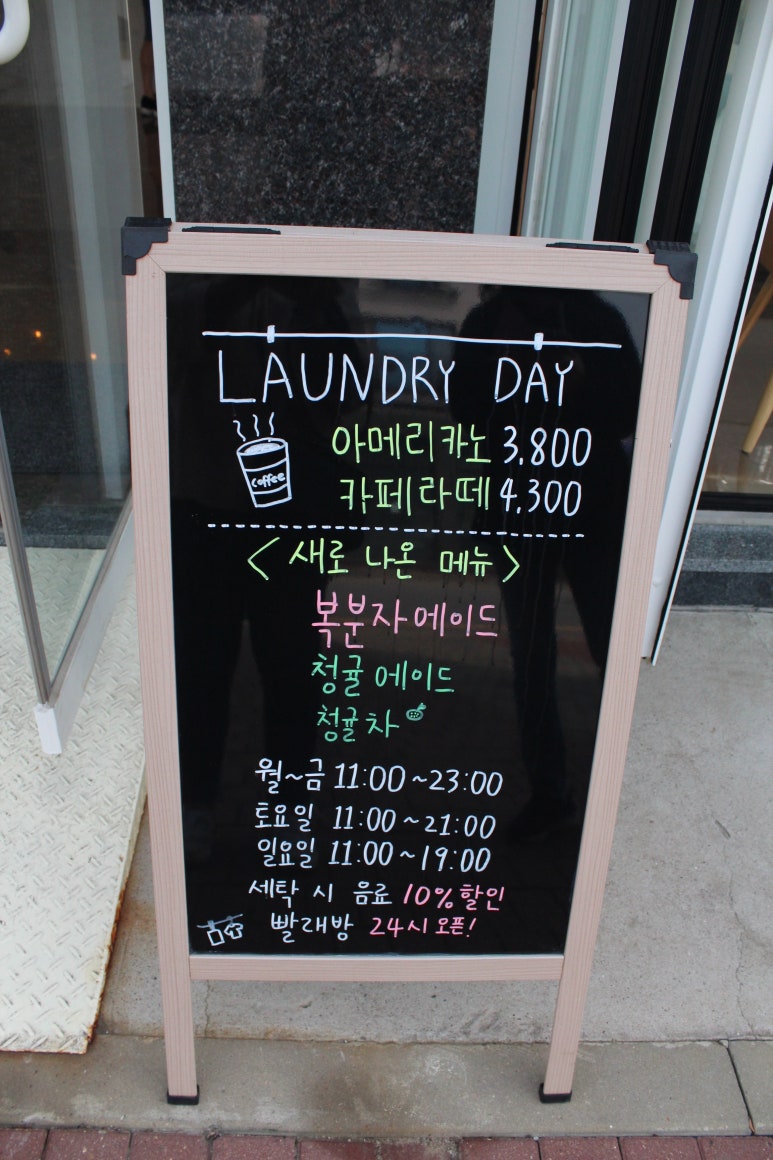 LAUNDRY DAY
coffee
아메리카노 3,800
카페라떼 4,300
<새로 나온 메뉴>
복분자에이드
청귤에이드
청귤차
월~금 11:00~23:00
토요일 11:00~21:00
일요일 11:00~19:00
세탁 시 음료 10% 할인
빨래방 24시 오픈!